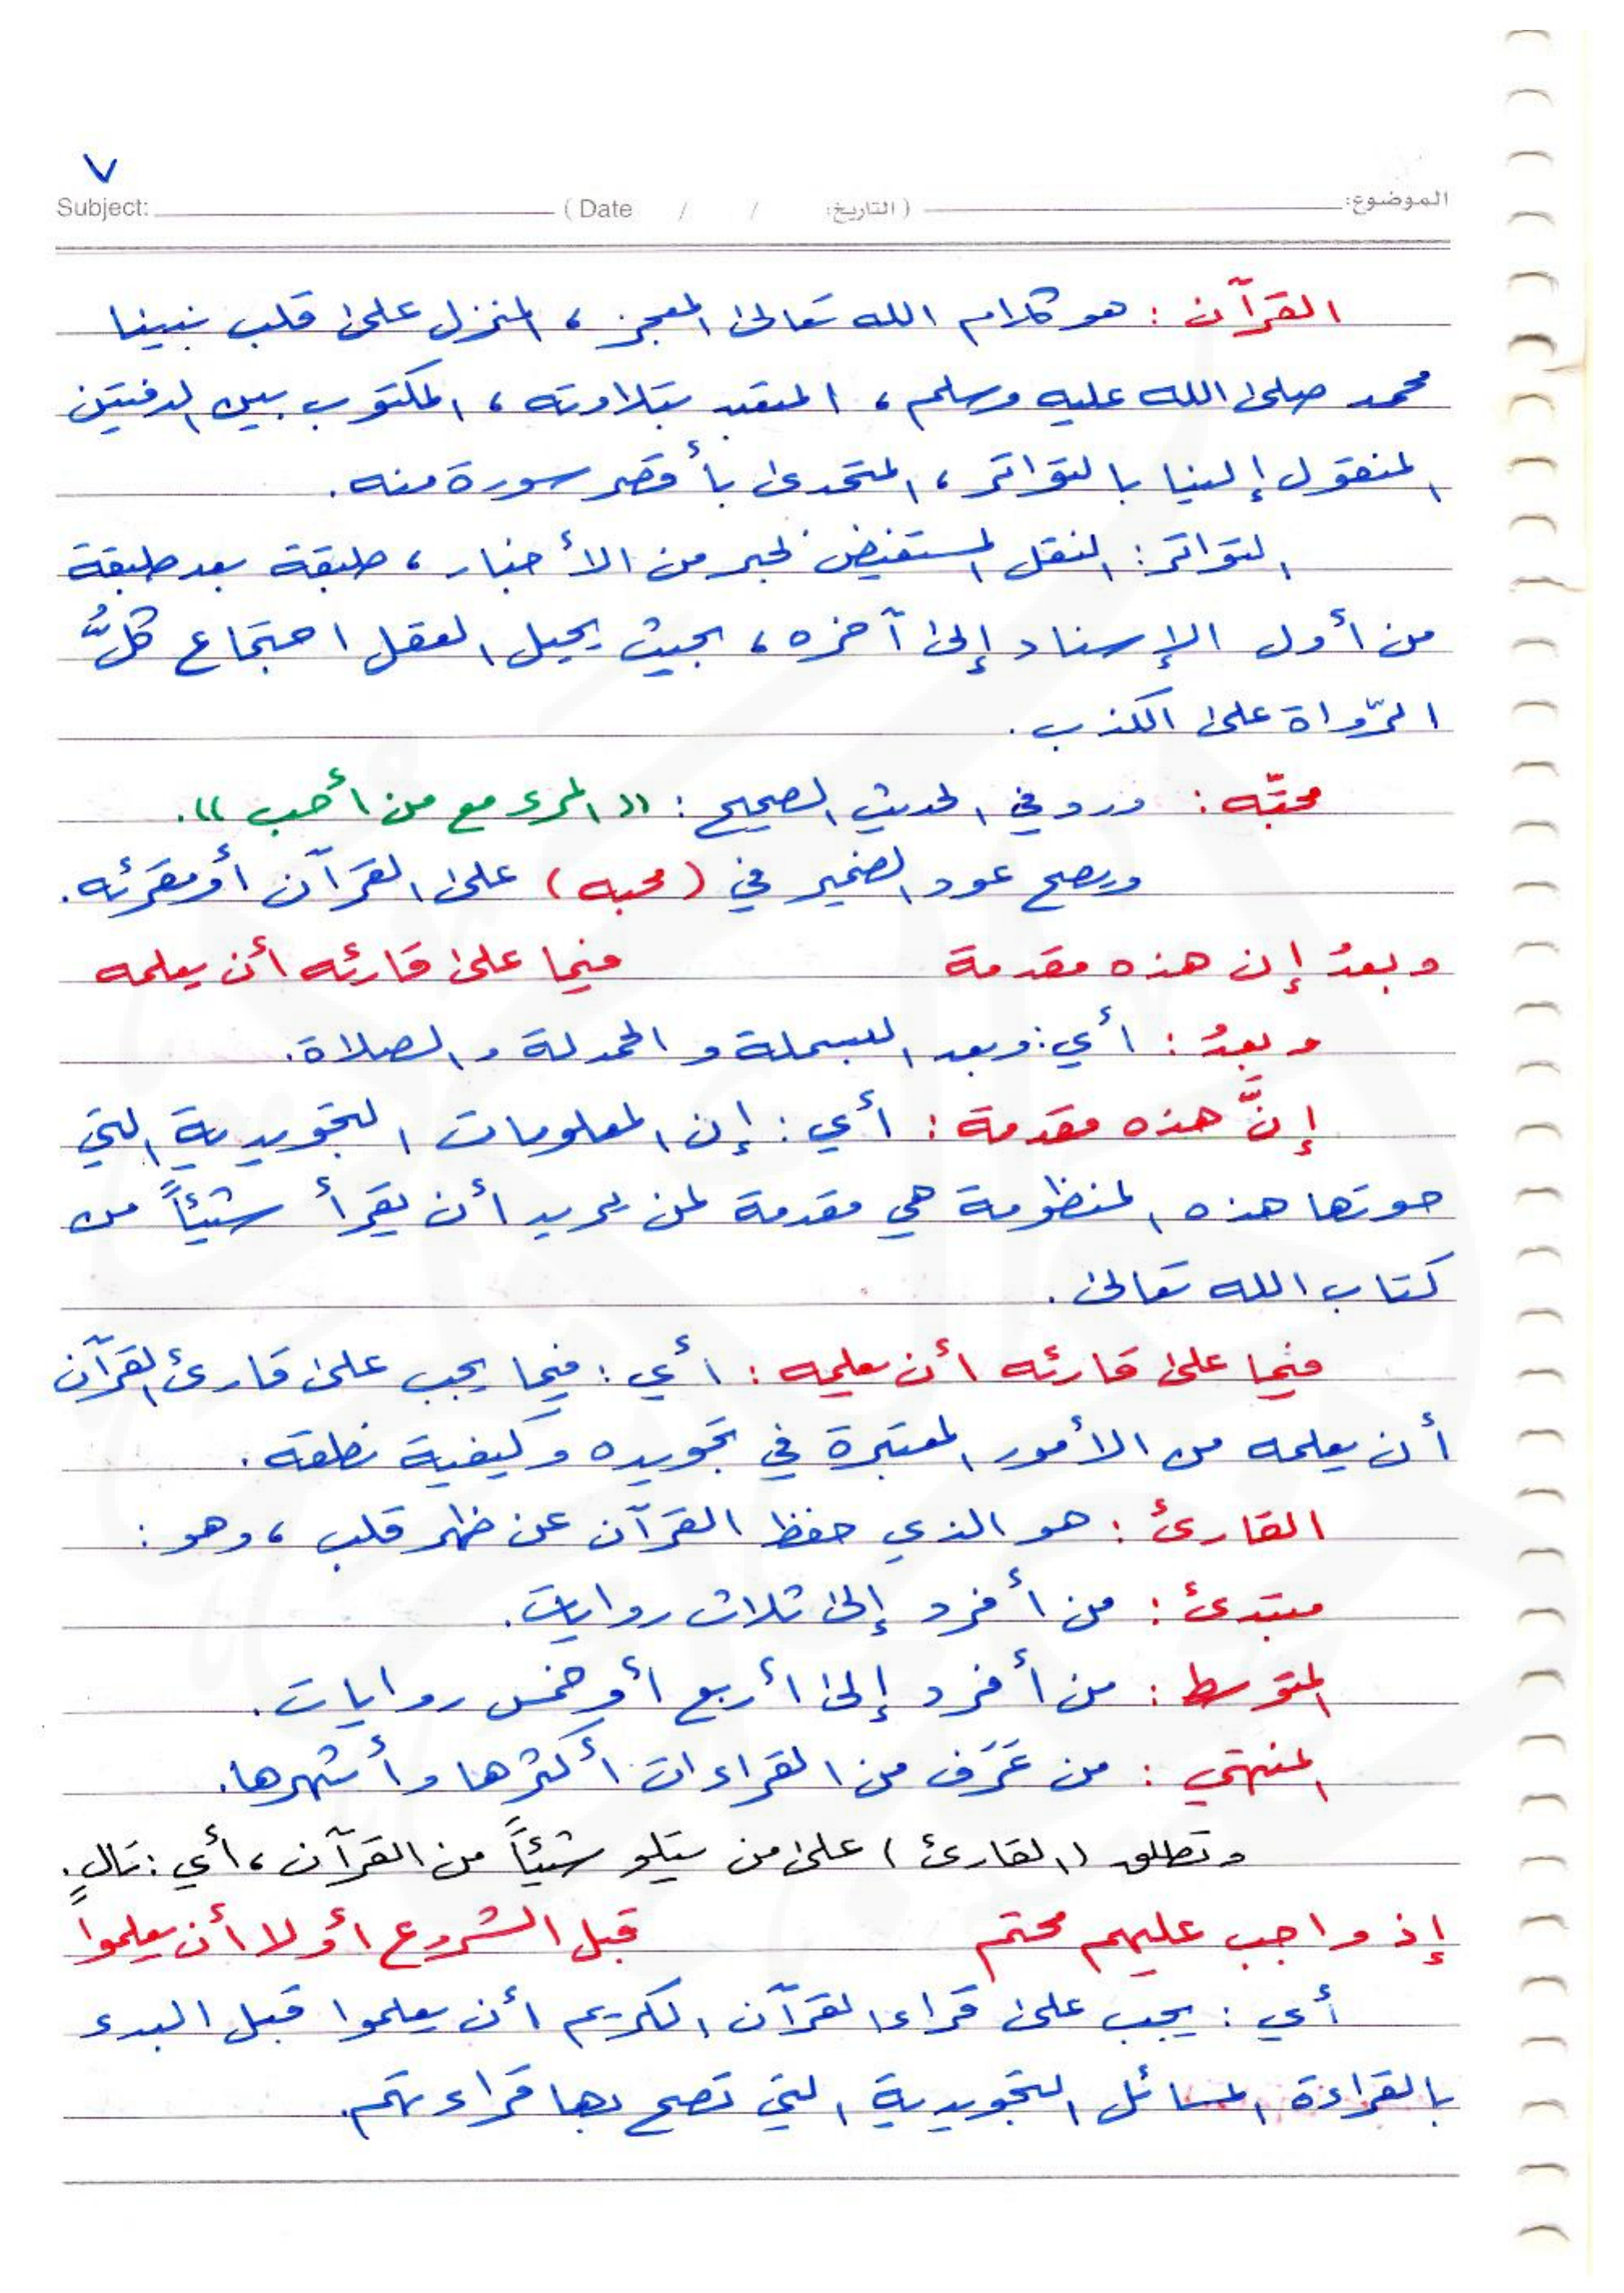 ٧
الموضوع: (التاريخ: / / Date) Subject:
القرآن : هو كلام الله تعالى المعجز ، المنزل على قلب نبينا
محمد صلى الله عليه وسلم ، المتعبد بتلاوته ، المكتوب بين الدفتين
المنقول إلينا بالتواتر ، المتحدى بأقصر سورة منه .
التواتر : النقل المستفيض لخبر من الأخبار ، طبقة بعد طبقة
من أول الإسناد إلى آخره ، بحيث يحيل العقل اجتماع كلُّ
الرّواة على الكذب .
محبّه : ورد في الحديث الصحيح : (( المرء مع من أحب )) .
ويصح عود الضمير في (محبه) على القرآن أو مقرئه .
وبعدُ إن هذه مقدمة فيما على قارئه أن يعلمه
وبعدُ : أي : وبعد البسملة و الحمدلة والصلاة .
إنَّ هذه مقدمة : أي : إن المعلومات التجويدية التي
حوتها هذه المنظومة هي مقدمة لمن يريد أن يقرأ شيئاً من
كتاب الله تعالى .
فيما على قارئه أن يعلمه : أي : فيما يجب على قارئ القرآن
أن يعلمه من الأمور المعتبرة في تجويده وكيفية نطقه .
القارئ : هو الذي حفظ القرآن عن ظهر قلب ، وهو :
مبتدئ : من أفرد إلى ثلاث روايات .
المتوسط : من أفرد إلى أربع أو خمس روايات .
المنتهي : من عَرَف من القراءات أكثرها وأشهرها .
وتطلق (القارئ) على من يتلو شيئاً من القرآن ، أي : تالٍ .
إذ واجب عليهم محتم قبل الشروع أولا أن يعلموا
أي : يجب على قراء القرآن الكريم أن يعلموا قبل البدء
بالقراءة المسائل التجويدية التي تصح بها قراءتهم.